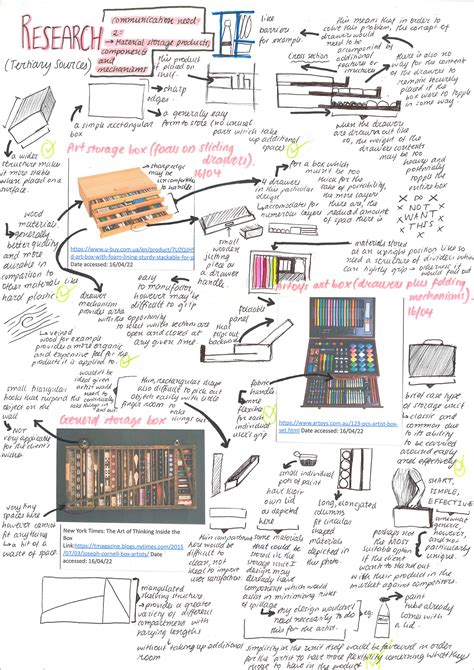 RESEARCH
(Tertiary Sources)
communication need
2:
→ Material storage products,
components
and
mechanisms
this product
if placed on
shelf.
like
barrier
for example.
This means that in order to
solve this problem, the concept of
drawers would
need to be
accompanied by
additional
features or
structure
cross section
there is also no
way for the content
of the drawers to
remain securely
placed if the
box were to topple
in some way.
sharp
edges.
a simple rectangular
box
a generally easy
form to store (no unusual
parts which take up
additional space)
when the drawers
are drawn out like
so, the weight of the
drawer contents
may be too
heavy and
potentially
topple the
entire box
a wider
structure makes
it more stable
when placed on a
surface.
Art storage box (focus on sliding
drawers).
16/04
sharp edge
may be
uncomfortable
to handle
for a box which
mustn't be too
thick for the
sake of portability,
the more layers
there are, the
reduced amount of
space there is
4 drawers
in this particular
design
accomodates for
numerous layers
X DO X
X NOT X
X WANT X
X THIS X
https://www.u-buy.com.ua/en/product/7U2QJHS
d-art-box-with-foam-lining-sturdy-stackable-for-a
Date accessed: 16/04/22
wood
materials
generally
better quality
and more
durable in
comparison to
other materials like
hard plastic
small
wooden
jutting
bits as
a drawer
handle
materials stored
at an upright position like so
need a structure of dividers which
are tightly grip → otherwise it
would fall out
drawer
mechanism
provides artist
with the opportunity
to select which section are
open and closed at
any given time.
easy
to manufacture,
however may be
difficult to grip
Artoys art box (drawers plus folding
mechanisms)
16/04
veined
wood for example
provides a more organic
and expensive feel for the
product it is applied to.
foldable
part
that
flip out
backward
wouldn't be
ideal given
artist would
need to
continually
take things in +
out
thin, rectangular shape
also difficult to pick out
object easily with little
finger room to
take
things out
fabric
handle
more
flexible
for each
individual
user's grip
https://www.artoys.com/au/123-pcs-artist-box-
set.html Date accessed: 16/04/22
brief case type
of storage unit
is classic and
common due
to its ability
to be
carried
around easily
and effectively
small triangular
hooks that suspend the
object on the
wall
NOT
very applicable
for the client's
wishes
General storage box
very tiny
spaces here
however cannot
fit anything
like a bit of a
waste of space.
New York Times: The Art of Thinking Inside the
Box
Link:https://tmagazine.blogs.nytimes.com/2015
/07/03/joseph-cornell-box-artists/ Date
accessed: 16/04/22
small individual
pots of paint
have their
own lid
as depicted
here
long, elongated
columns
fit circular
shaped
materials
depicted in
the photo
SMART,
SIMPLE,
EFFECTIVE
somewhat
generic,
however,
and not
particularly
unique.
perhaps not
the MOST
suitable option
if the client
want to stand out
with their product in the
market against competitors.
thin compartments
here would be
difficult to
clean, not
ideal to improve
user satisfaction
some materials
that could
be used in the
storage unit I
design may
already have
components which would
assist in minimising risks
of spillage
my design wouldn't
need necessarily to
do this for the
artist.
paint
tube already
comes
with a
lid
triangulated
shelving structure
→ provides a greater
variety of different
compartment with
varying lengths
without taking up additional
room
simplicity in the unit itself would be favoured in order
for the artist to have more flexibility concerning what they
choose to have in the product